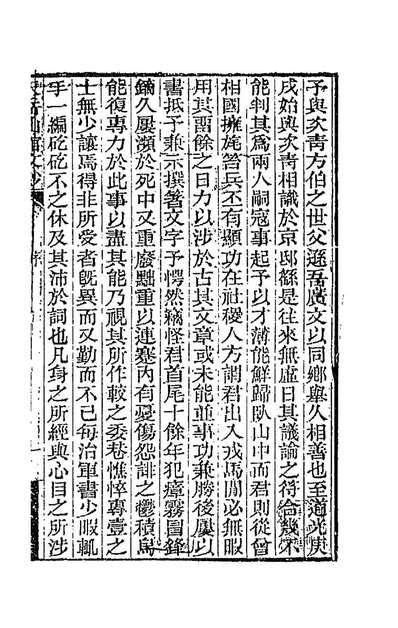 予與次青方伯之世父遜吾廣文以同鄉舉人相善也至道光庚
戌始與次青相識於京邸繇是往來無虛日其議論之符合幾不
能判其為兩人嗣寇事起予以才薄能鮮歸臥山中而君則從曾
相國擁旄箬兵丕有顯功在社稷人方謂君出入戎馬閒必無暇
用其畱餘之日力以涉於古其文章或未能並事功兼勝後屢以
書抵予兼示撰箸文字予愕然竊怪君首尾十餘年犯瘴霧冒鋒
鏑久屢瀕於死中又重廢黜重以連蹇內有憂傷怨誹之鬱積烏
能復專力於此事以盡其能乃視其所作較之委巷憔悴專壹之
士無少讓焉得非所愛者旣異而又勤而不已每治軍書少暇輒
手一編矻矻不之休及其沛於詞也凡身之所經與心目之所涉
天岳山館文鈔 序